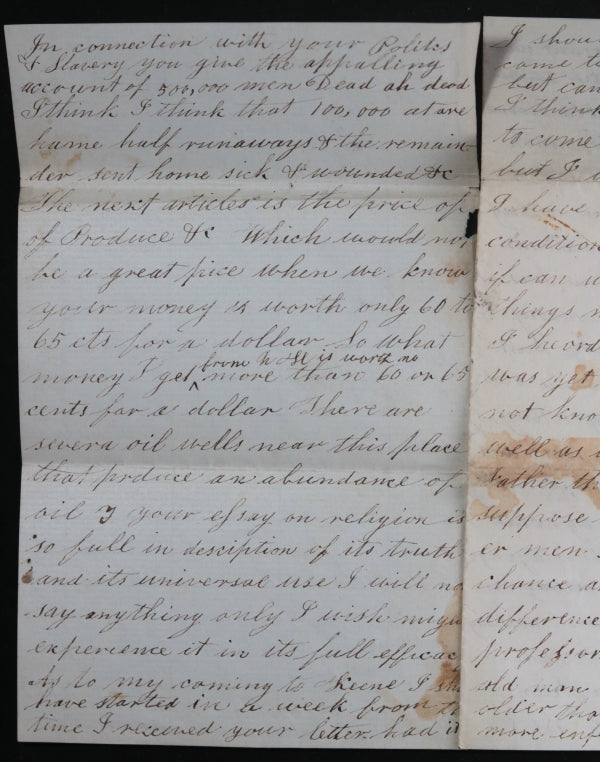 In connection with your Politis
& Slavery you give the appalling
account of 500,000 men Dead ah dead
I think I think that 100,000 at are
hame half runaways & the remain-
der sent home sick & wounded &c
The next articles is the price of
of Produce &c Which would not
be a great pice when we know
your money is worth only 60 to
65 cts for a dollar So what
from N H is worth no
money I get more than 60 or 65
cents for a dollar There are
severa oil wells near this place
that prduce an abundance of
oil your essay on religion is
so full in desciption of its truth
and its universal use I will no
say anything only I wish migh
experience it in its full efficac
As to my coming to Keene I sh
have started in a week from th
time I received your letter had it
I shou
came to
but can
I think
to come
but I
I have
condition
if can
things
I heard
was yet
not kno
well as
Father th
suppose
er men
chance a
difference
professor
old man
older tha
more enf